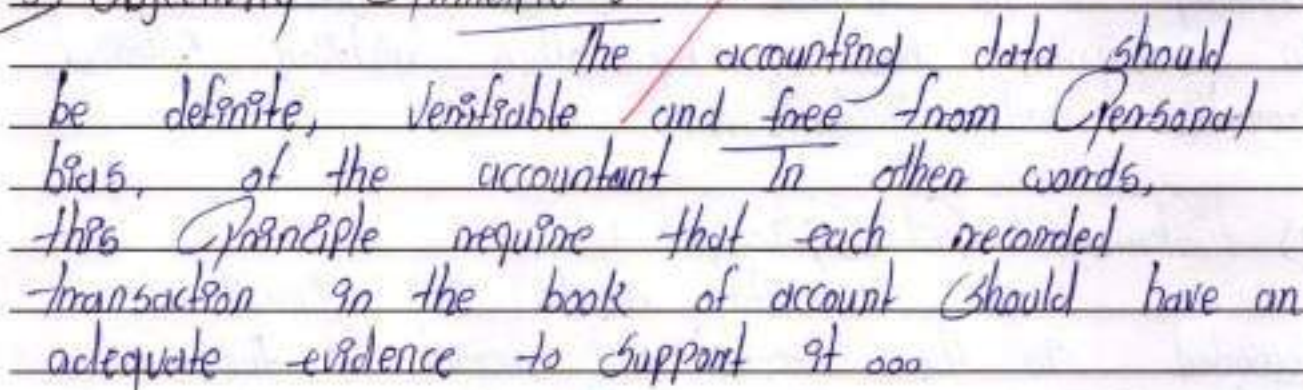 Objectivity Principle :
The accounting data should
be definite, verifiable and free from Personal
bias, of the accountant In other words,
this Principle require that each recorded
transaction in the book of account should have an
adequate evidence to support it ...